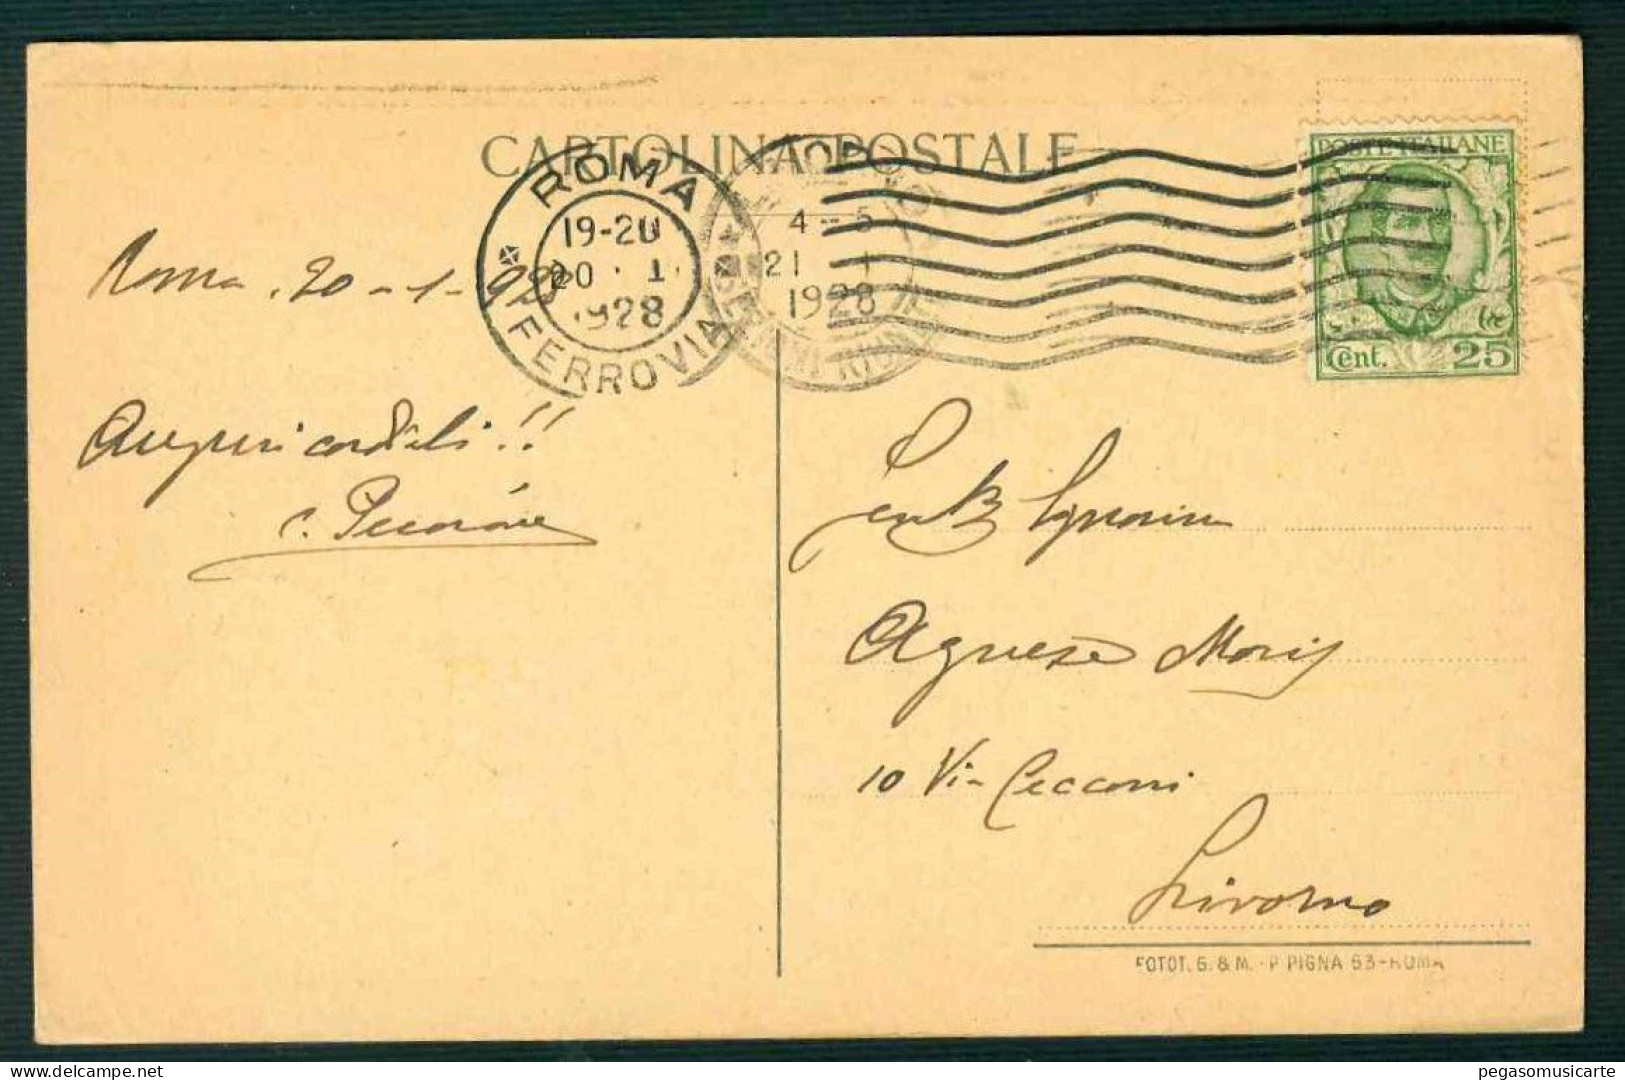 CARTOLINA POSTALE
ROMA
FERROVIA
19-20
20 · 1
1928
4-5
21 1
1928
POSTE ITALIANE
Cent. 25
Roma, 20-1-928
Auguri cordiali!!
Signorina
Agnese
10 Via Cecconi
Livorno
FOTOT. G. & M. - P. PIGNA 53-ROMA
pegasomusicarte